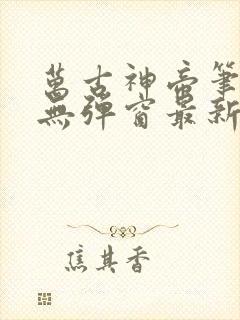 萬古神帝筆
無彈窗最新
焦其香